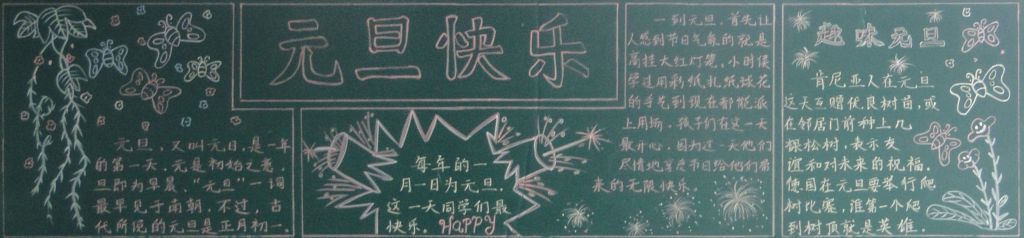 元旦快乐
元旦，又叫元日，是一年
的第一天，元是初始之意，
旦即为早晨，“元旦”一词
最早见于南朝，不过，古
代所说的元旦是正月初一。
每年的一
月一日为元旦，
这一天同学们最
快乐。HAPPY
一到元旦，首先让
人感到节日气象的就是
高挂大红灯笼，小时侯
学过用彩纸扎纸球花
的手艺到现在都能派
上用场，孩子们在这一天
最开心，因为这一天他们
尽情地享受节日给他们带
来的无限快乐。
趣味元旦
肯尼亚人在元旦
这天互赠优良树苗，或
在邻居门前种上几
棵松树，表示友
谊和对未来的祝福。
便国在元旦要举行爬
树比赛，谁第一个爬
到树顶就是英雄。